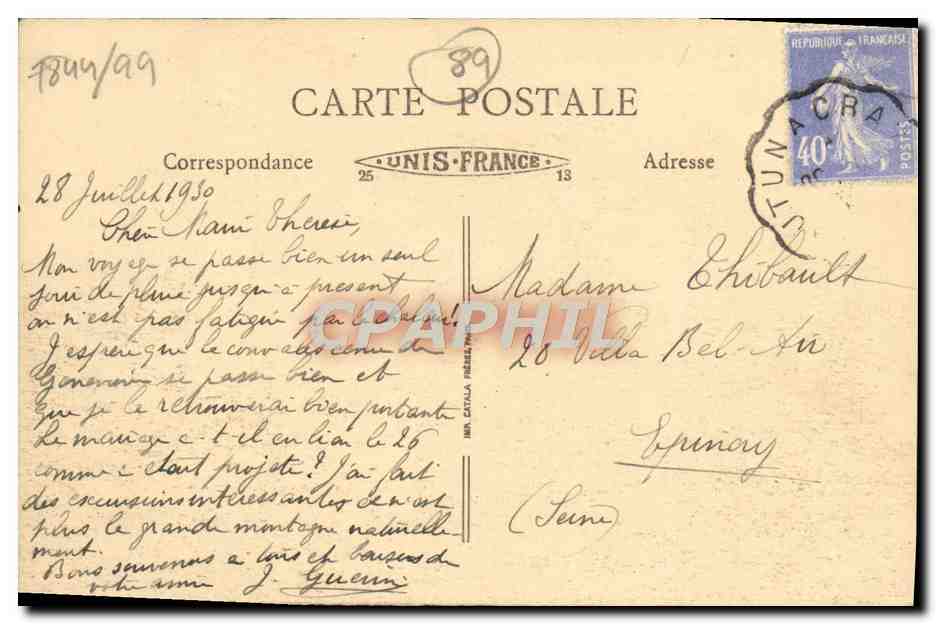 7844/99
89
CARTE POSTALE
REPUBLIQUE FRANÇAISE
40c
POSTES
UTUN A CRA
Correspondance
UNIS-FRANCE
25 13
Adresse
28 Juillet 1930
Chère Marie Thérèse,
Mon voyage se passe bien un seul
jour de pluie jusqu'à présent
on n'est pas fatigué par la chaleur!
J'espère que la convalescence de
Geneviève se passe bien et
que je la retrouverai bien portante
Le mariage a-t-il eu lieu le 26
comme c'était projeté? J'ai fait
des excursions intéressantes ce n'est
plus la grande montagne naturelle-
ment.
Bons souvenirs à tous et baisers de
votre amie J. Guerin
CPAPHIL
IMP. CATALA FRÈRES, PARIS
Madame Thibault
20 Villa Bel-Air
Epinay
(Seine)